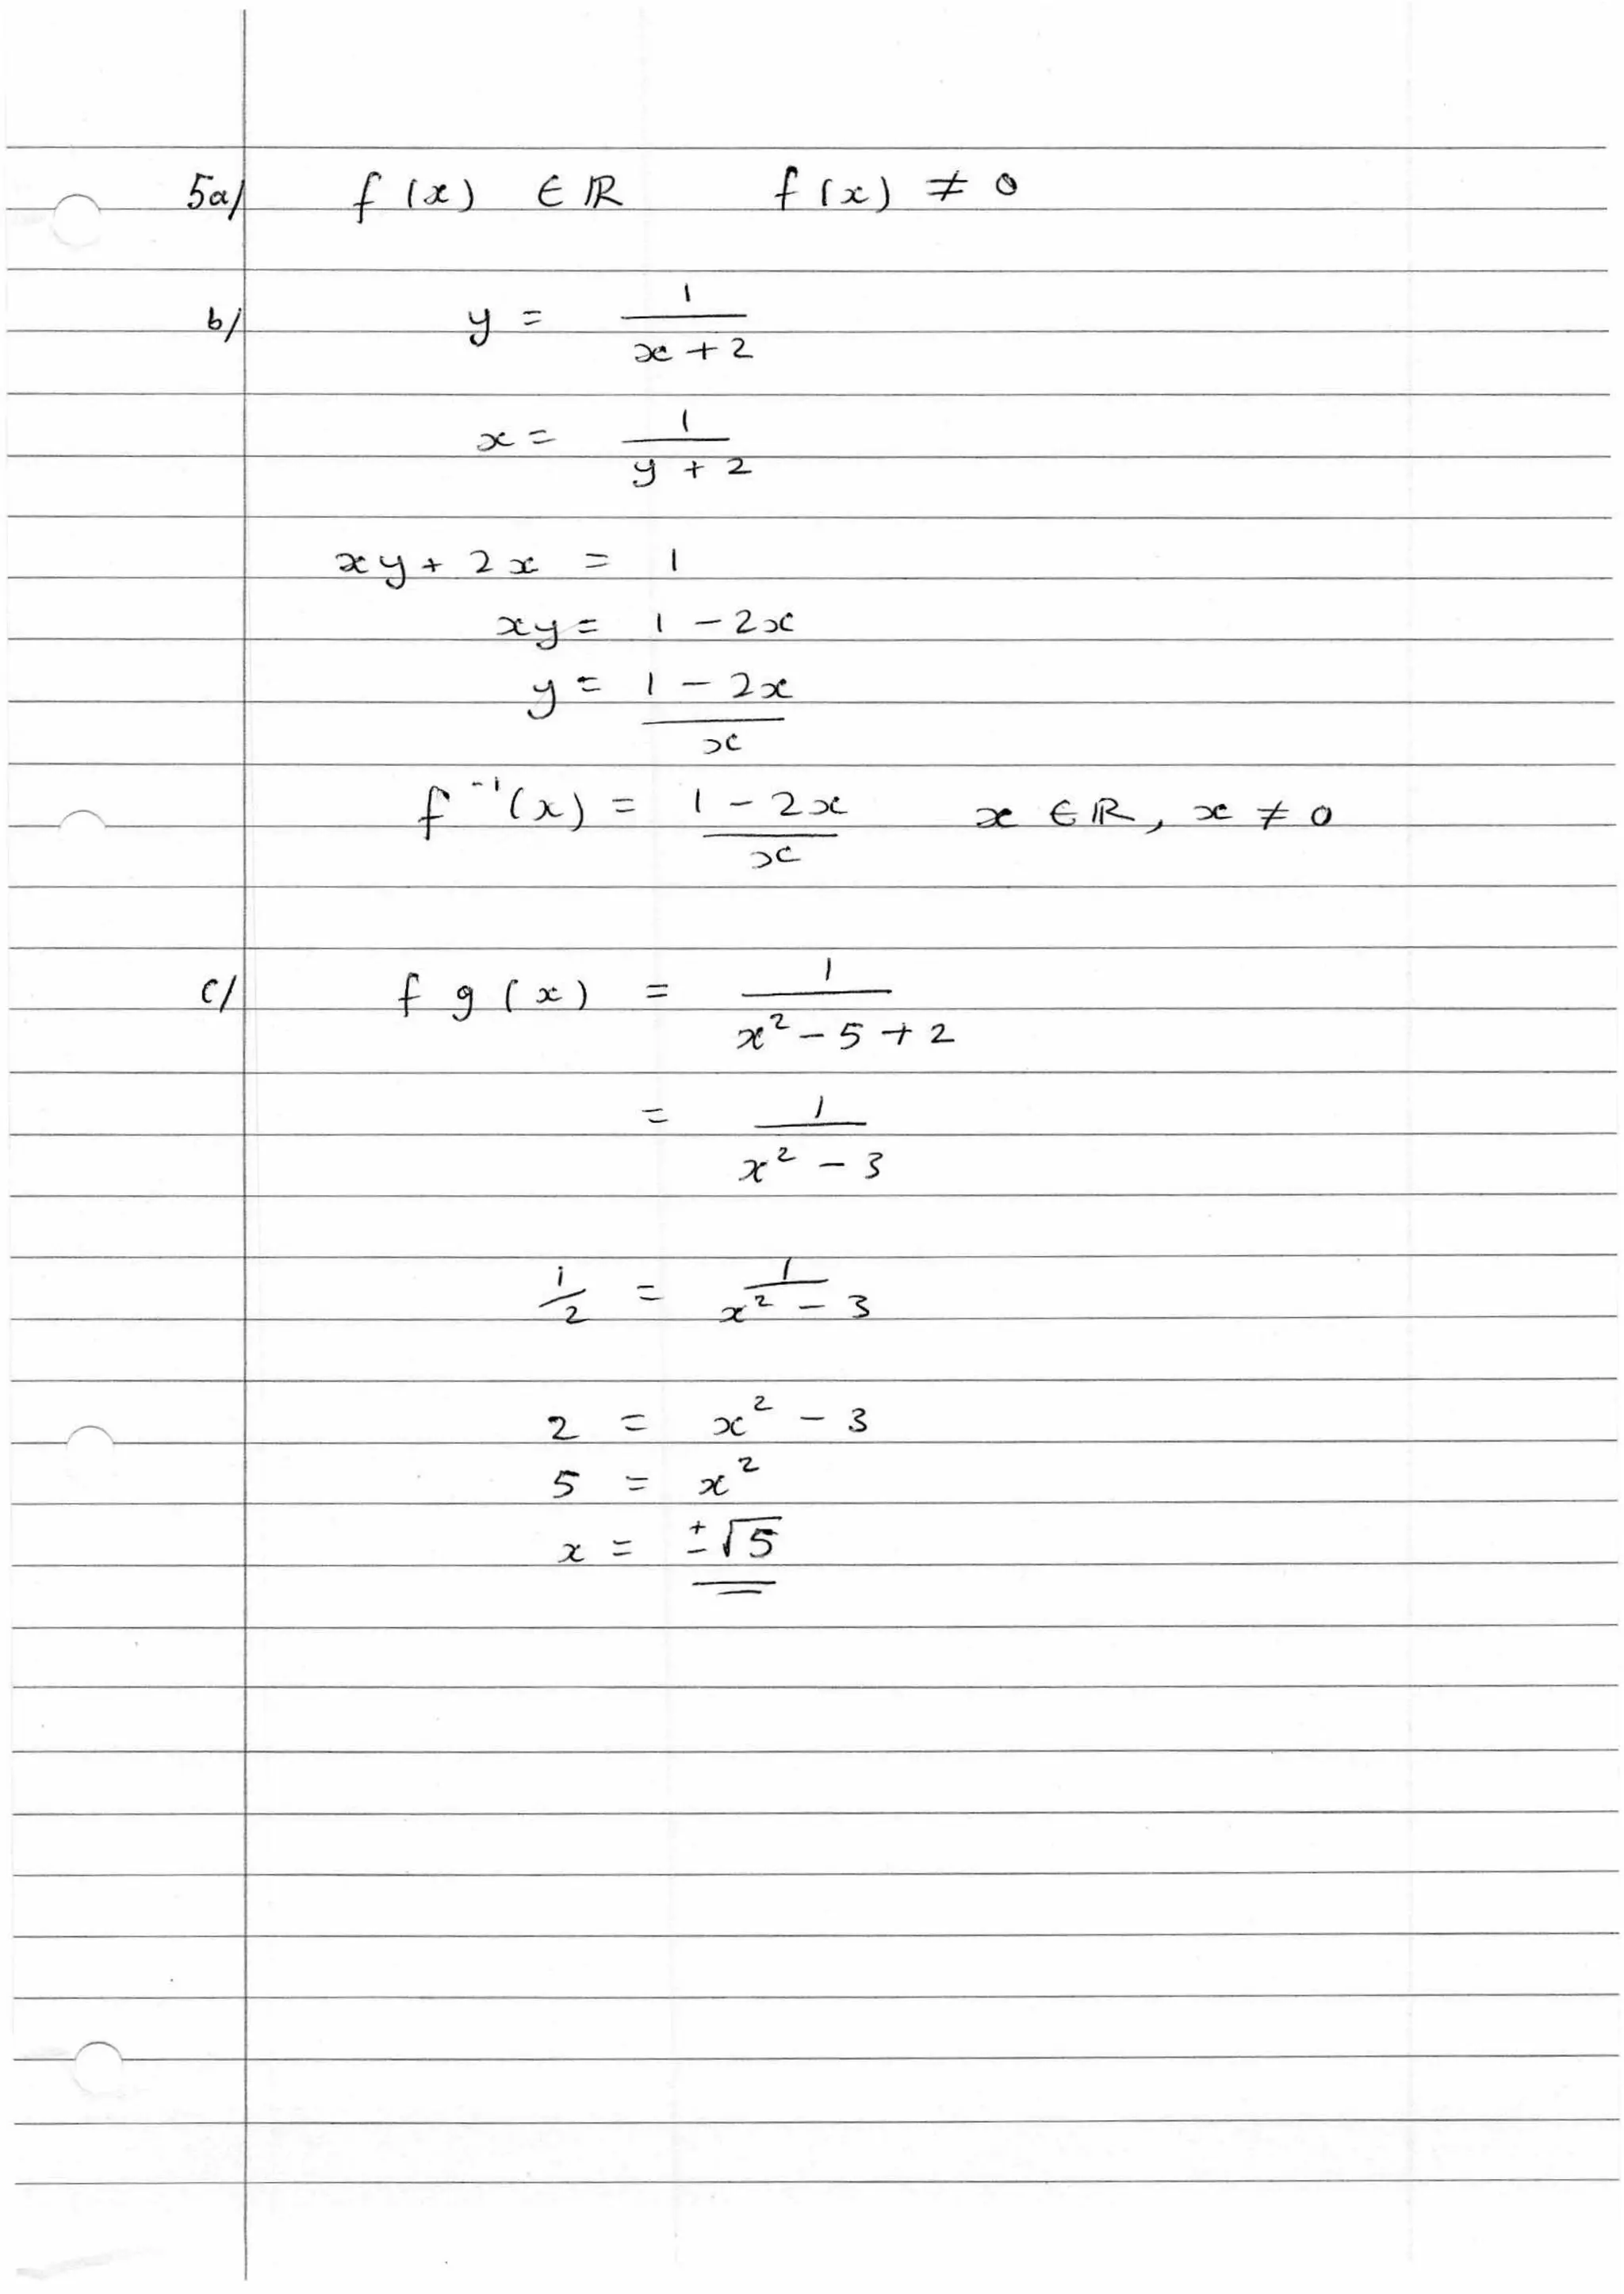 5a/ f(x) ∈ ℝ f(x) ≠ 0
b/ y = 1/(x + 2)
x = 1/(y + 2)
xy + 2x = 1
xy = 1 - 2x
y = (1 - 2x)/x
f⁻¹(x) = (1 - 2x)/x x ∈ ℝ, x ≠ 0
c/ f g (x) = 1/(x² - 5 + 2)
= 1/(x² - 3)
1/2 = 1/(x² - 3)
2 = x² - 3
5 = x²
x = ±√5